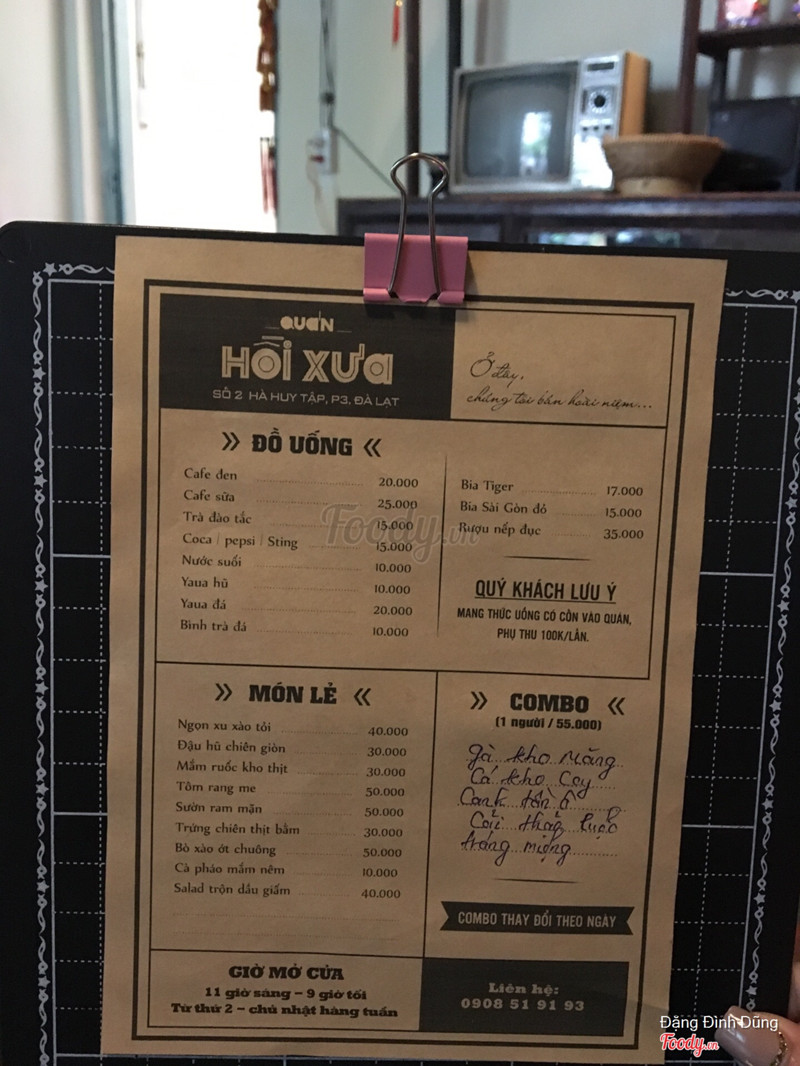 QUÁN
HỒI XƯA
SỐ 2 HÀ HUY TẬP, P3, ĐÀ LẠT
Ở đây,
chúng tôi bán hoài niệm...
ĐỒ UỐNG
Cafe đen 20.000
Cafe sữa 25.000
Trà đào tắc 15.000
Coca | pepsi | Sting 15.000
Nước suối 10.000
Yaua hũ 10.000
Yaua đá 20.000
Bình trà đá 10.000
Bia Tiger 17.000
Bia Sài Gòn đỏ 15.000
Rượu nếp đục 35.000
QUÝ KHÁCH LƯU Ý
MANG THỨC UỐNG CÓ CỒN VÀO QUÁN,
PHỤ THU 100K/LẦN.
MÓN LẺ
Ngọn xu xào tỏi 40.000
Đậu hũ chiên giòn 30.000
Mắm ruốc kho thịt 30.000
Tôm rang me 50.000
Sườn ram mặn 50.000
Trứng chiên thịt bằm 30.000
Bò xào ớt chuông 50.000
Cà pháo mắm nêm 10.000
Salad trộn dầu giấm 40.000
COMBO
(1 người / 55.000)
gà kho măng
Cá kho Cay
Cank tần ô
Cải thảo luộc
tráng miệng
COMBO THAY ĐỔI THEO NGÀY
GIỜ MỞ CỬA
11 giờ sáng – 9 giờ tối
Từ thứ 2 – chủ nhật hàng tuần
Liên hệ:
0908 51 91 93
Foody.vn
Đặng Đình Dũng
Foody.vn